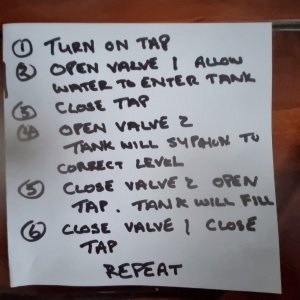 ① TURN ON TAP
② OPEN VALVE 1 ALLOW
WATER TO ENTER TANK
③ CLOSE TAP
④ OPEN VALVE 2
TANK WILL SYPHON TO
CORRECT LEVEL
⑤ CLOSE VALVE 2 OPEN
TAP. TANK WILL FILL
⑥ CLOSE VALVE 1 CLOSE
TAP
REPEAT